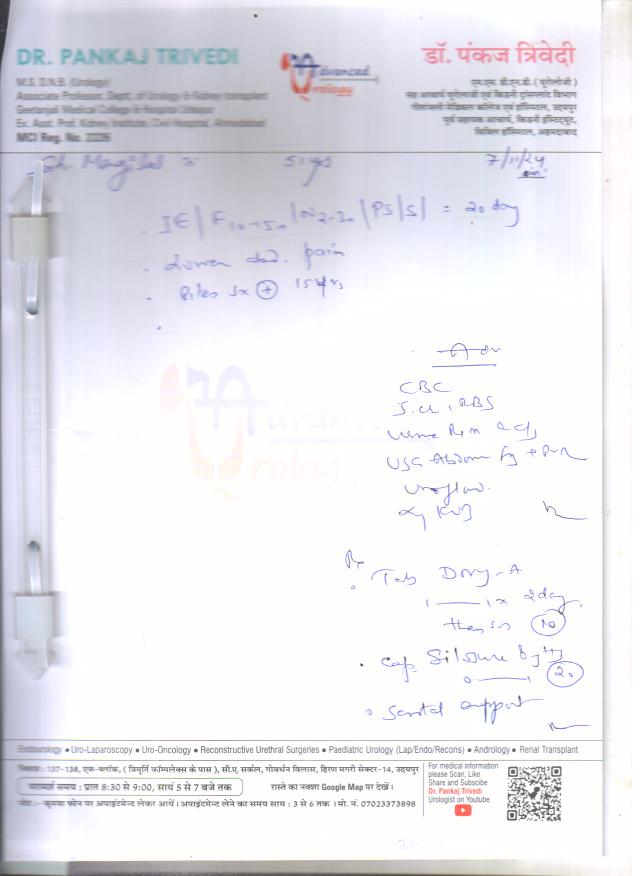 DR. PANKAJ TRIVEDI
M.S. D.N.B. (Urology)
Associate Professor Deptt. of Urology & Kidney transplant
Geetanjali Medical College & Hospital Udaipur
Ex. Asst. Prof. Kidney Institute, Civil Hospital, Ahmedabad
MCI Reg. No.
Advanced Urology
डॉ. पंकज त्रिवेदी
एम.एस. डी.एन.बी. ( यूरोलोजी )
सह आचार्य यूरोलोजी एवं किडनी ट्रांसप्लांट विभाग
गीतांजली मेडिकल कॉलेज एवं हॉस्पिटल, उदयपुर
पूर्व सहायक आचार्य, किडनी इंस्टिट्यूट,
सिविल हॉस्पिटल, अहमदाबाद
51 yrs 7/11/24
= 20 day
Lower abd. pain
Piles sx + 15 yrs
Advanced
Urology
Adv
CBC
S.cr, RBS
Urine R/M & C/S
USG Abdomen + PVR
Uroflow
Xray KUB
Rx
Tab Doxy-A
1 — 1 x 2 day
10
Cap
0 — 1 20
Scrotal support
Endourology ● Uro-Laparoscopy ● Uro-Oncology ● Reconstructive Urethral Surgeries ● Paediatric Urology (Lap/Endo/Recons) ● Andrology ● Renal Transplant
निवास : 137-138, एफ-ब्लॉक, ( त्रिमूर्ति कॉम्पलेक्स के पास ), सी.ए. सर्कल, गोवर्धन विलास, हिरण मगरी सेक्टर-14, उदयपुर
परामर्श समय : प्रात 8:30 से 9:00, सायं 5 से 7 बजे तक रास्ते का नक्शा Google Map पर देखें।
नोट :- कृपया फोन पर अपाइंटमेन्ट लेकर आयें। अपाइंटमेन्ट लेने का समय सायं : 3 से 6 तक । मो. नं. 07023373898
For medical information
please Scan, Like
Share and Subscibe
Dr. Pankaj Trivedi
Urologist on Youtube